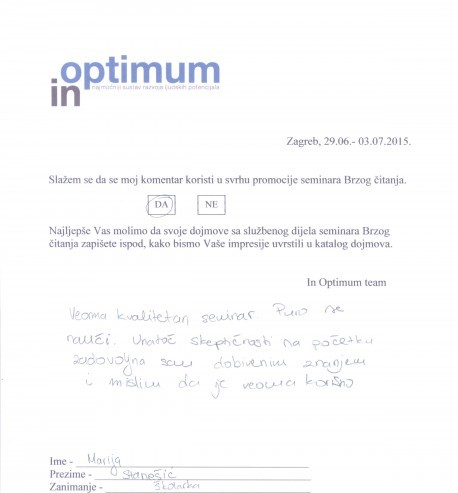 optimum
in
najmoćniji sustav razvoja ljudskih potencijala
Zagreb, 29.06.- 03.07.2015.
Slažem se da se moj komentar koristi u svrhu promocije seminara Brzog čitanja.
DA NE
Najljepše Vas molimo da svoje dojmove sa službenog dijela seminara Brzog
čitanja zapišete ispod, kako bismo Vaše impresije uvrstili u katalog dojmova.
In Optimum team
Veoma kvalitetan seminar. Puno se
nauči. Unatoč skeptičnosti na početku
zadovoljna sam dobivenim znanjem
i mislim da je veoma korisno
Ime - Marija
Prezime -
Zanimanje -